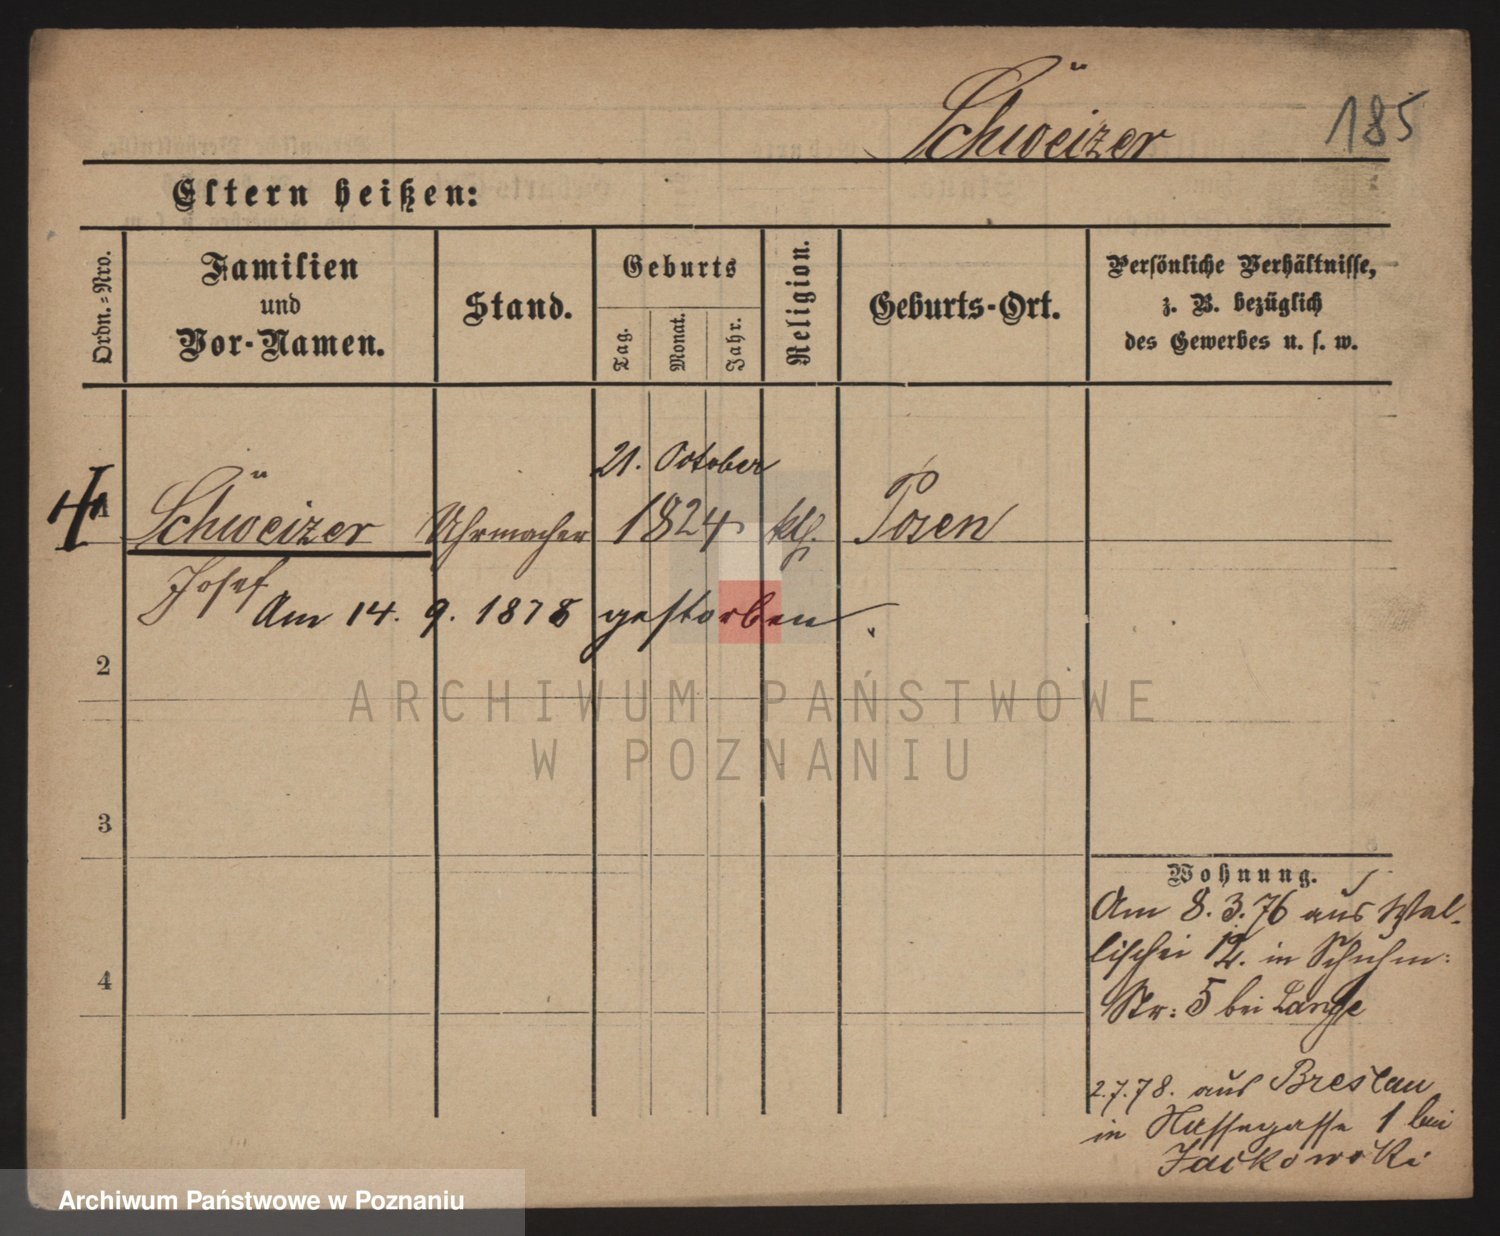 Schweizer
185
Eltern heißen:
Ordn.-Nro.
Familien
und
Vor-Namen.
Stand.
Geburts
Tag.
Monat.
Jahr.
Religion.
Geburts-Ort.
Persönliche Verhältnisse,
z. B. bezüglich
des Gewerbes u. s. w.
21. October
1 Schweizer Uhrmacher 1824 kth. Posen
Josef
Am 14. 9. 1878 gestorben.
2
ARCHIWUM PAŃSTWOWE
W POZNANIU
3
Wohnung.
Am 8.3.76 aus Wal-
lischei in Schuhm:
4
Str: 5 bei Lange
2.7.78. aus Breslau
in 1 bei
Jackowski
Archiwum Państwowe w Poznaniu